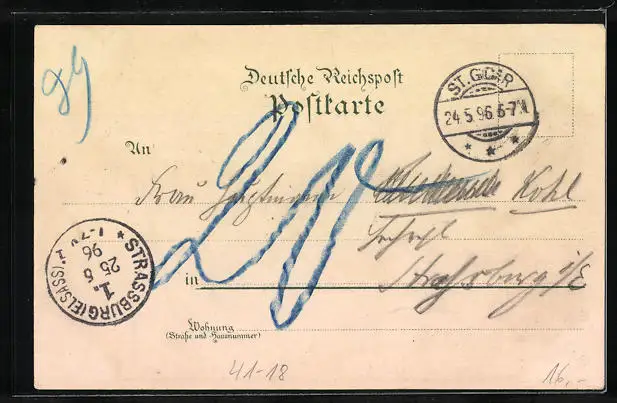 89
Deutsche Reichspost
Postkarte
ST. GOAR
24 5.96. 6-7 N
An
Frau Hauptmann Kohl
20
in Straßburg i/E
STRASSBURG (ELSASS)
1.
25 5
96
Wohnung
(Straße und Hausnummer)
41-18
16,-